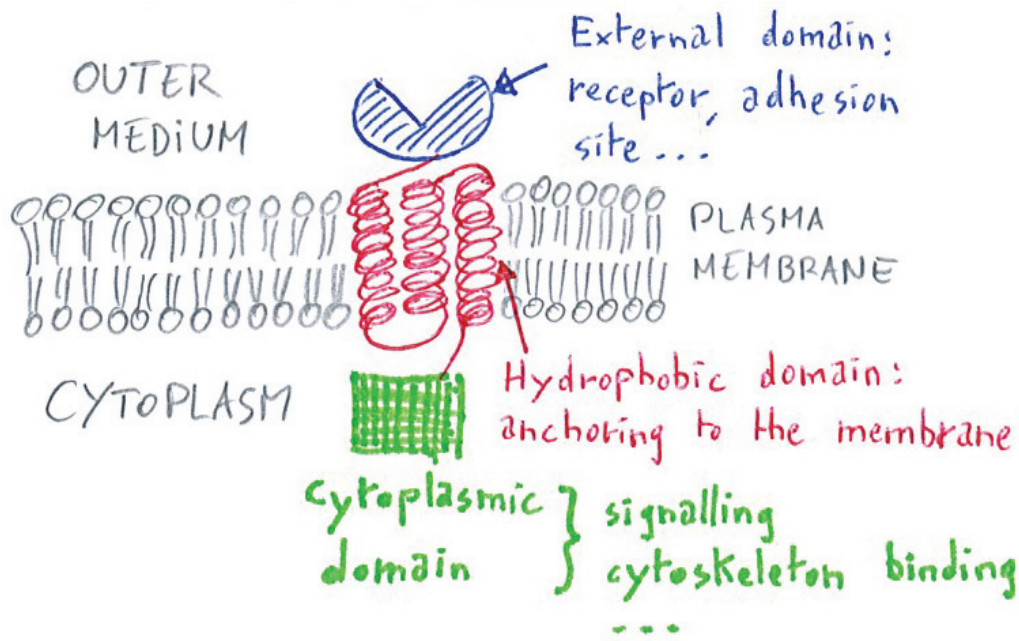 OUTER
MEDIUM
External domain:
receptor, adhesion
site ...
PLASMA
MEMBRANE
CYTOPLASM
Hydrophobic domain:
anchoring to the membrane
cytoplasmic
domain
} signalling
cytoskeleton binding
...